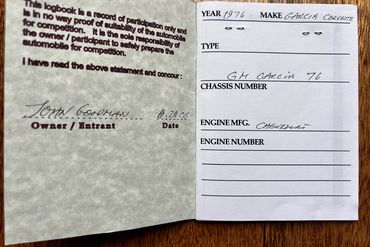 This logbook is a record of participation only and
is in no way proof of suitability of the automobile
for competition. It is the sole responsibility of
the owner / participant to safely prepare the
automobile for competition.
I have read the above statement and concour :
JOHN GOODMAN
Owner / Entrant Date
YEAR 1976 MAKE GARCIA CORVETTE
TYPE
GM GARCIA 76
CHASSIS NUMBER
ENGINE MFG. CHEVROLET
ENGINE NUMBER